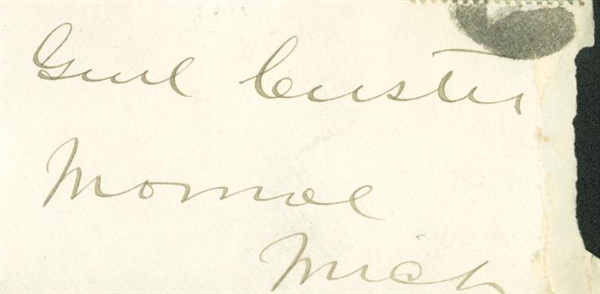 Genl Custer
Monroe
Mich